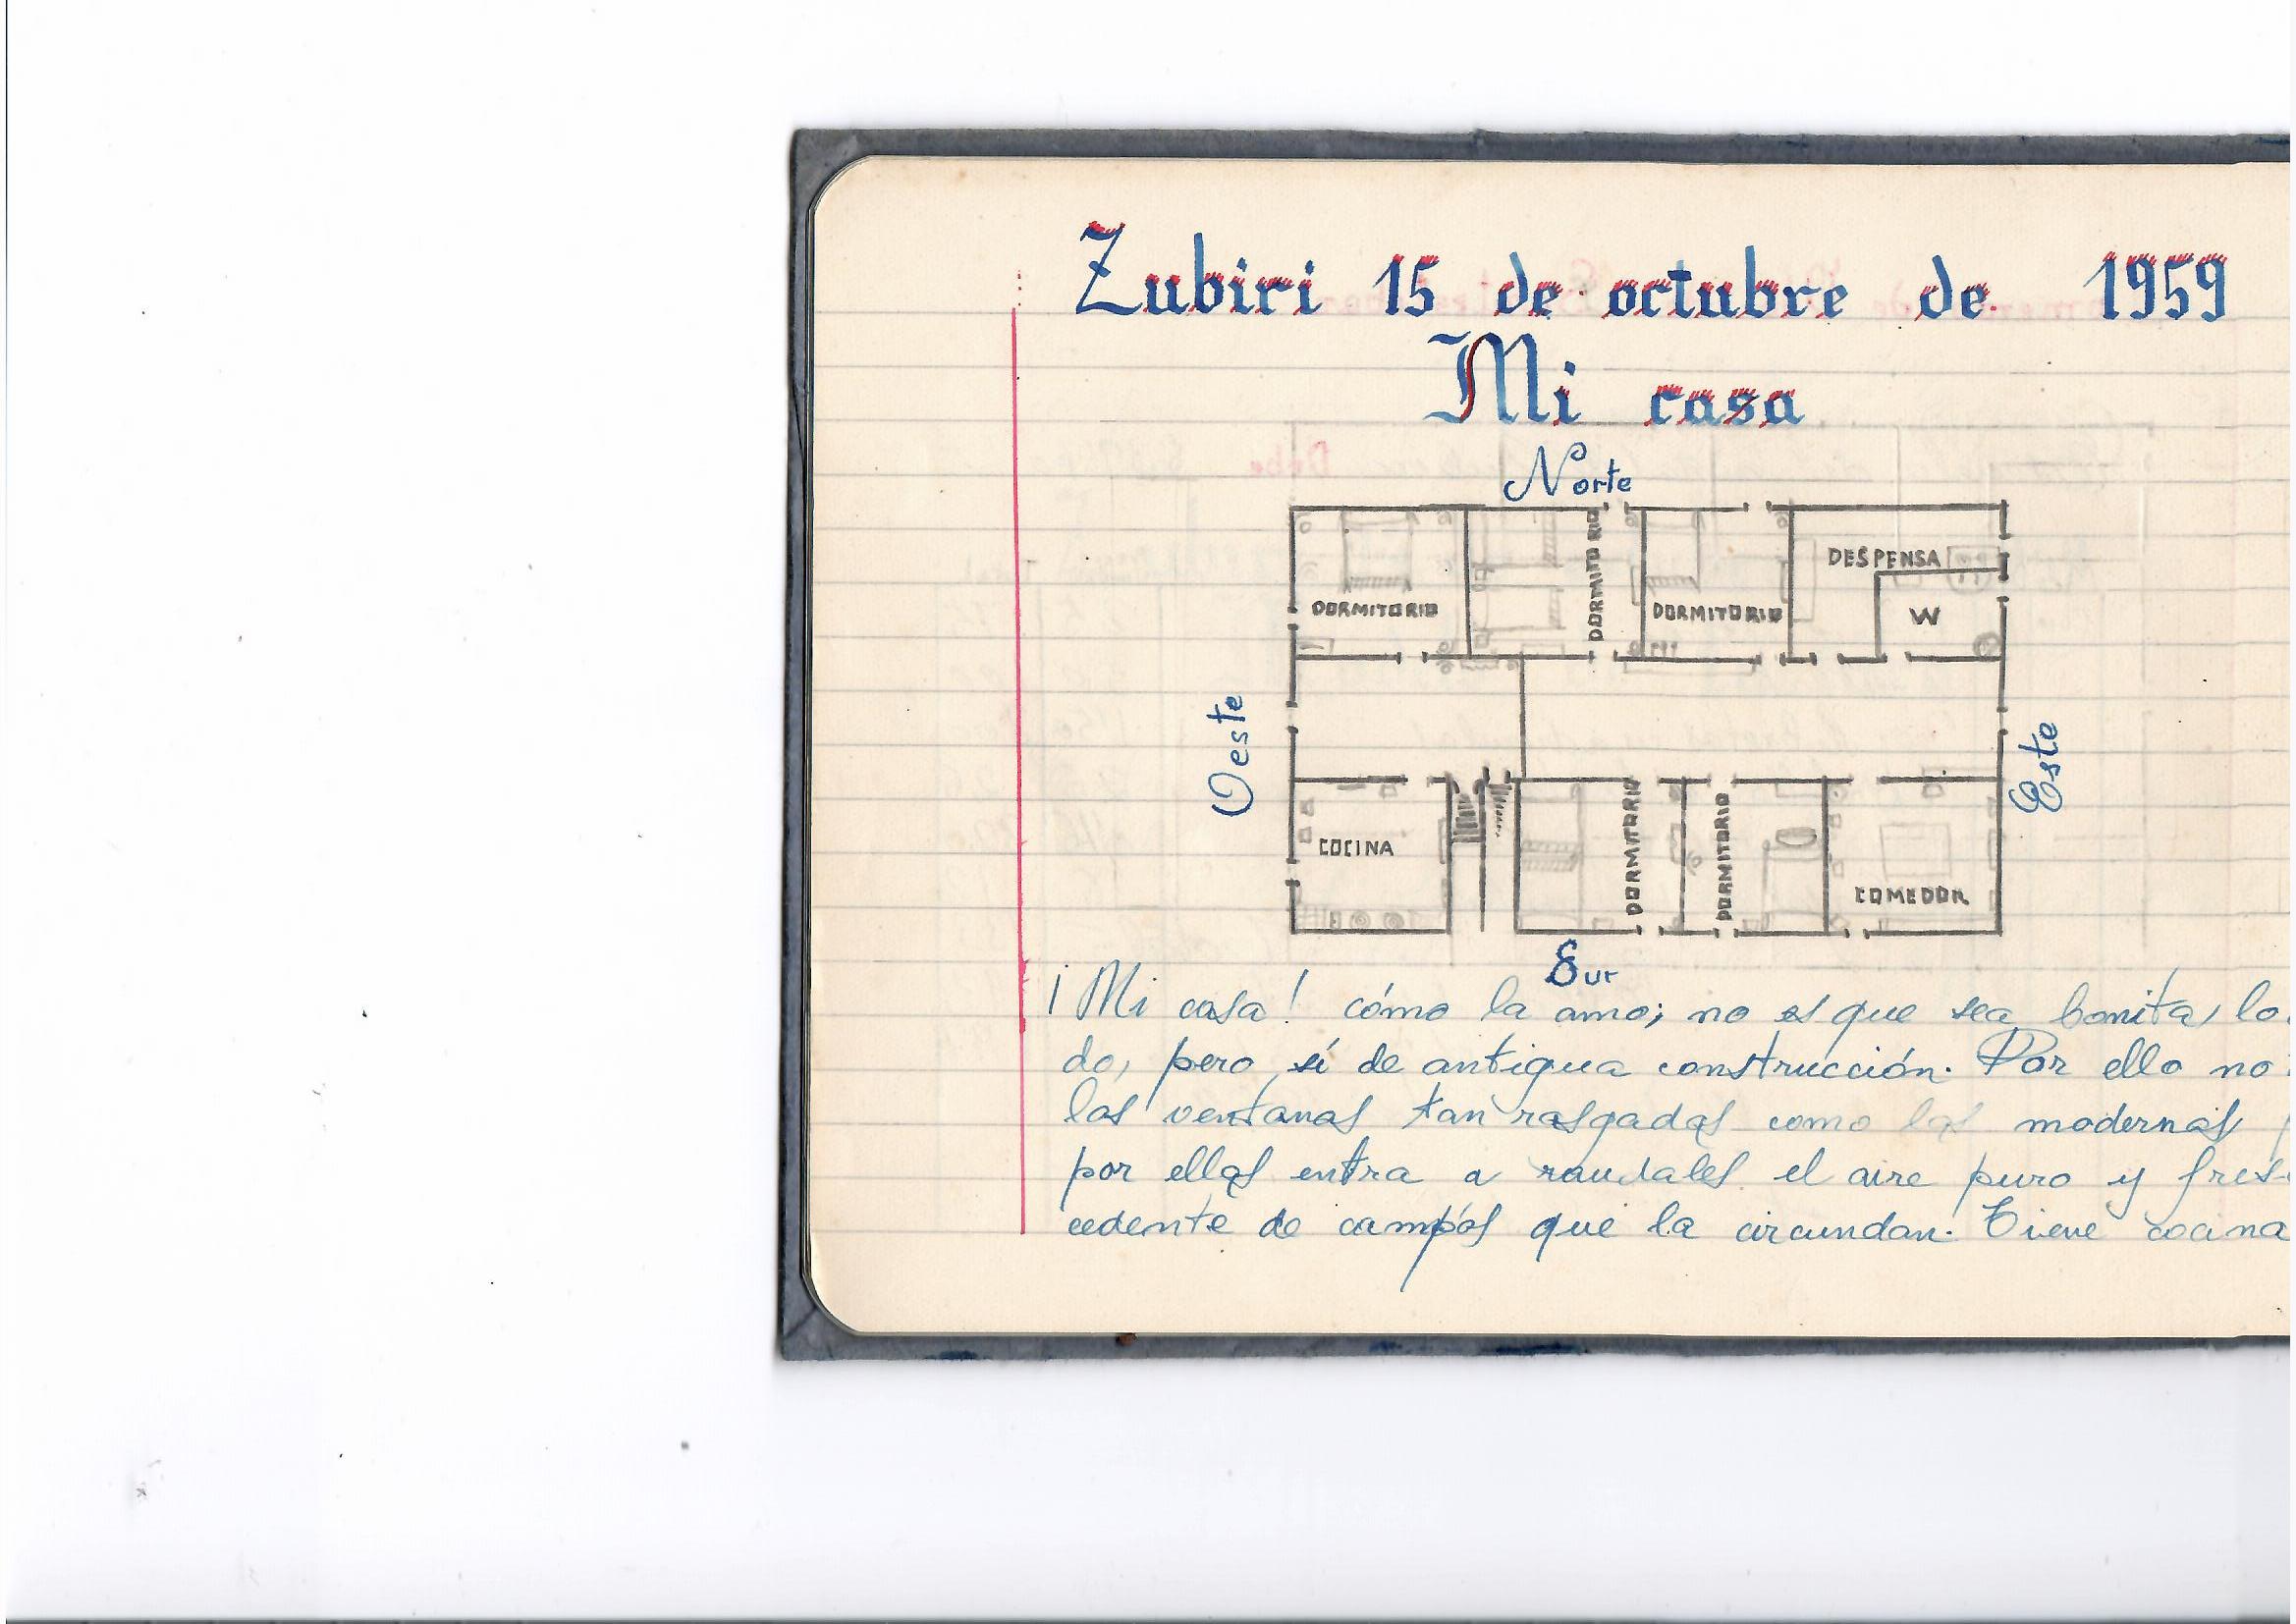 Zubiri 15 de octubre de 1959
Mi casa
Norte
DESPENSA
DORMITORIO
DORMITORIO
DORMITORIO
W
Oeste
Este
COCINA
DORMITORIO
DORMITORIO
COMEDOR
Sur
¡Mi casa! cómo la amo; no es que sea bonita, lo
do, pero sí de antigua construcción. Por ello no
las ventanas tan rasgadas como las modernas
por ellas entra a raudales el aire puro y fres
cedente de campos que la circundan. Tiene cocina